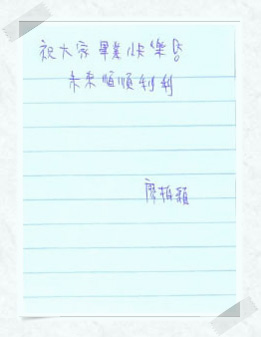 祝大家畢業快樂!
未來順順利利
廖栢穎